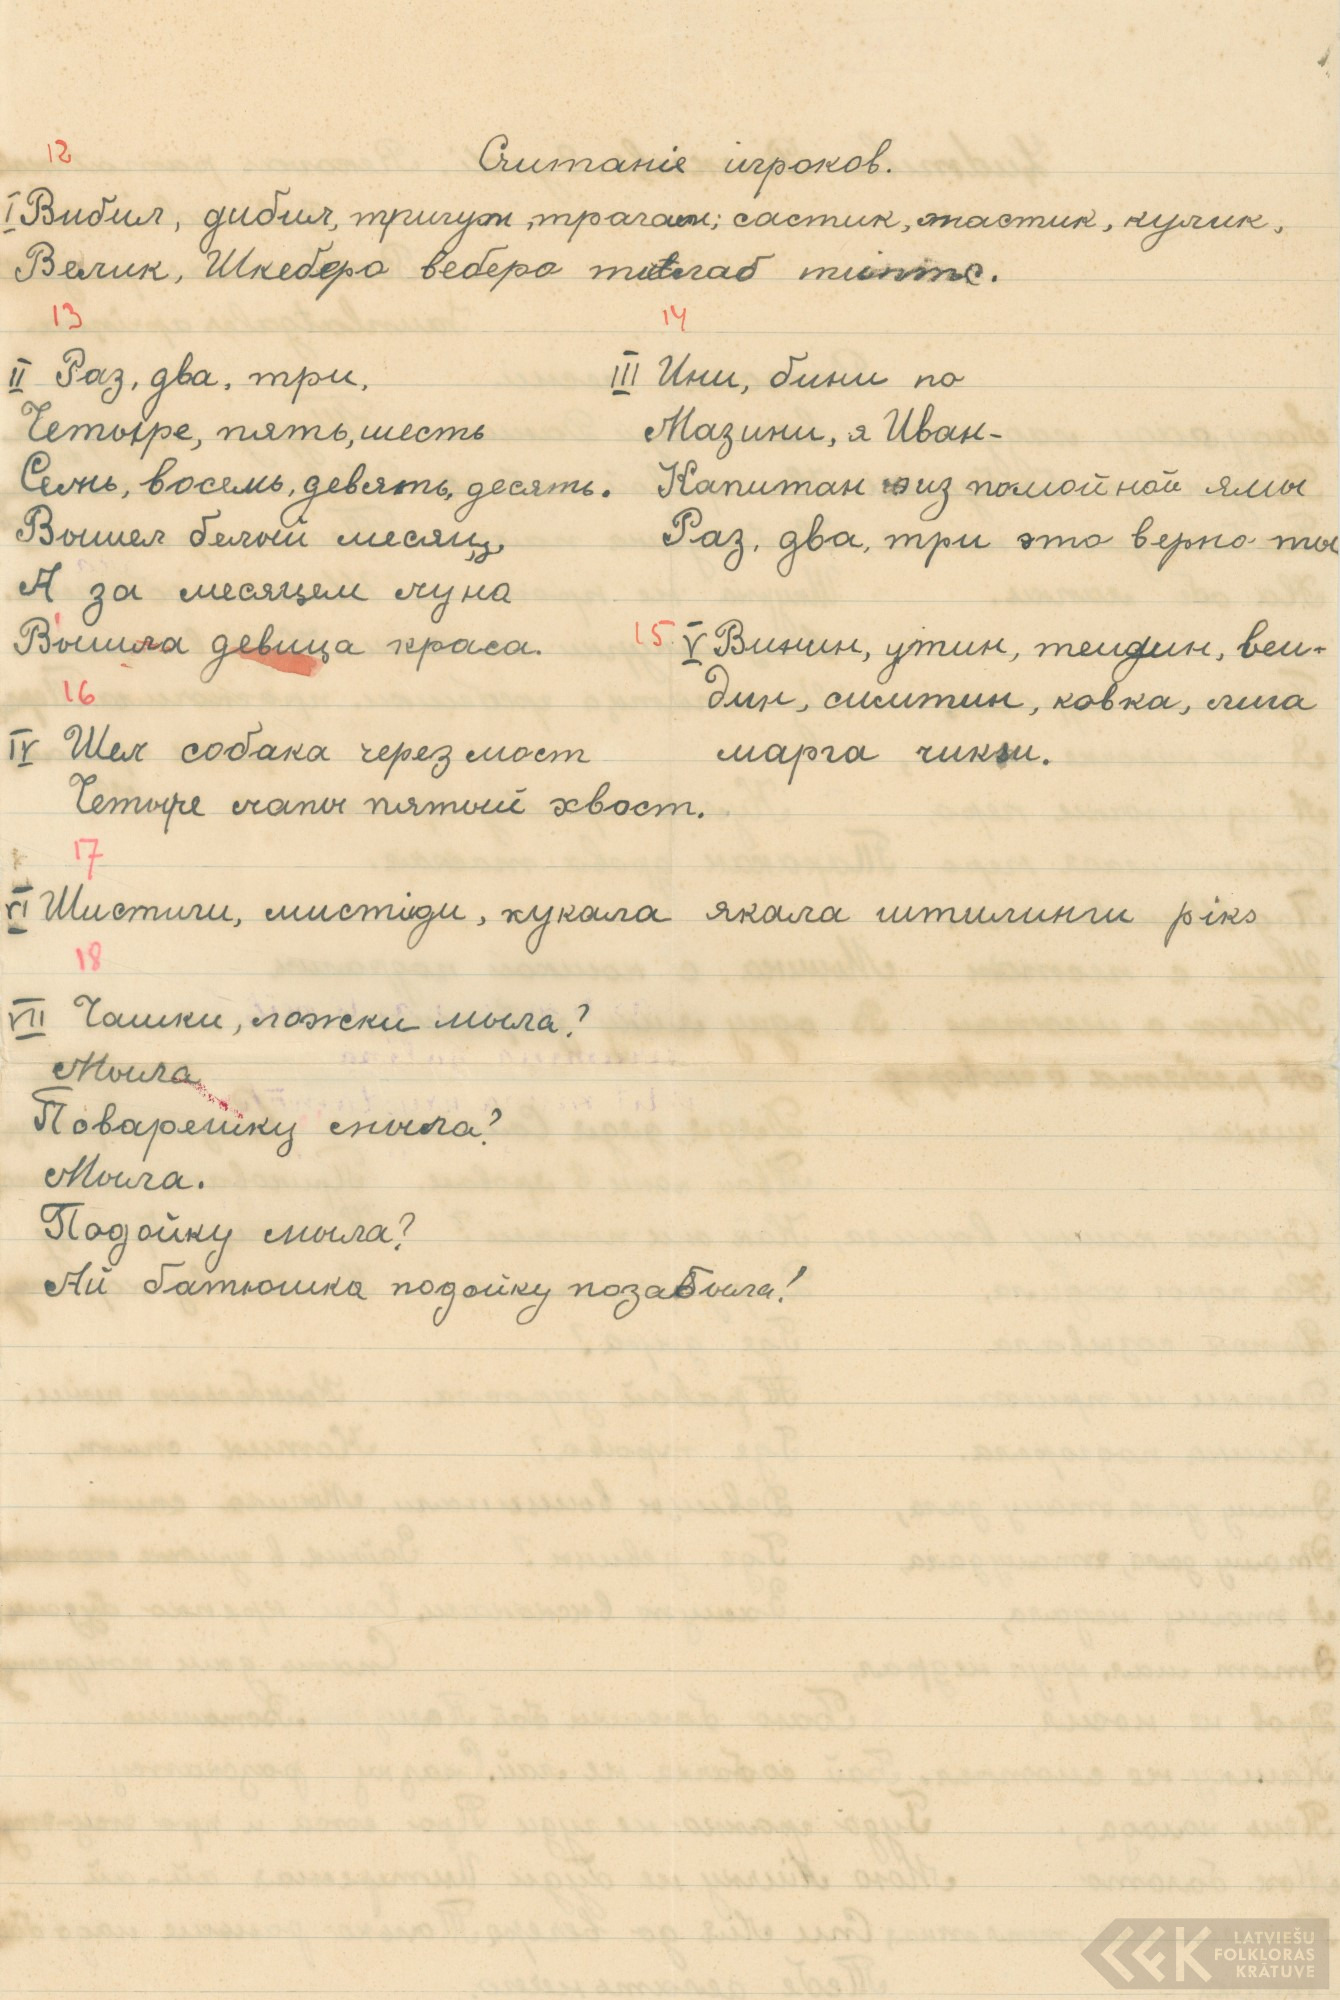 12
Считаніе ігроков.
I Вибил, дибил, тригун, трагач; састик, мастик, кулик,
Велик, Шкебера вебера титлаб типтс.
13
II Раз, два, три,
Четыре, пять, шесть
Семь, восемь, девять, десять.
Вышел белый месяц,
А за месяцем луна
Вышла девица краса.
14
III Ини, бини по
Мазини, я Иван-
Капитан из помойной ямы
Раз, два, три это верно ты
15 V Винин, утин, теидин, веи-
дин, симтин, ковка, лига
марга чикги.
16
IV Шел собака через мост
Четыре лапы пятый хвост.
17
VI Шистичи, мистіди, кукала якала штилинги рікs
18
VII Чашки, ложки мыла?
Мыла
Поварешку мыла?
Мыла.
Подойку мыла?
Ай батюшка подойку позабыла!
LATVIEŠU
FOLKLORAS
KRĀTUVE